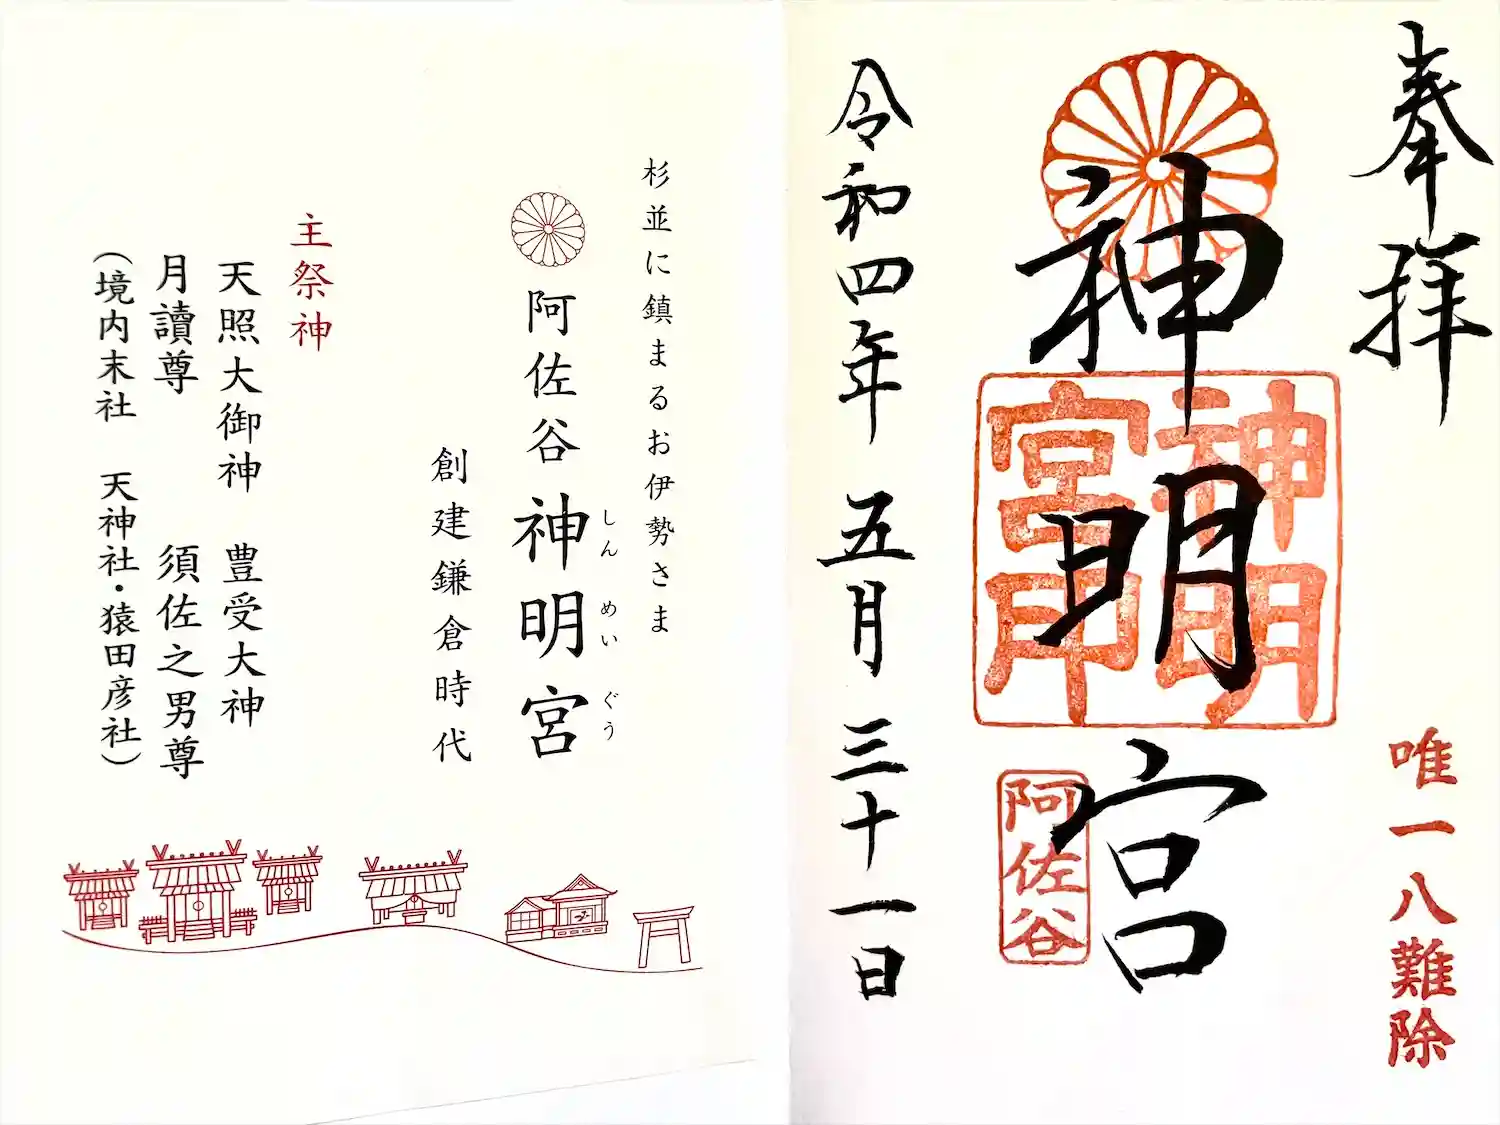 奉拝
唯一八難除
神明宮
神明
宮印
阿佐谷
令和四年五月三十一日
杉並に鎮まるお伊勢さま
阿佐谷神明宮
しんめいぐう
創建鎌倉時代
主祭神
天照大御神 豊受大神
月讀尊 須佐之男尊
(境内末社 天神社・猿田彦社)